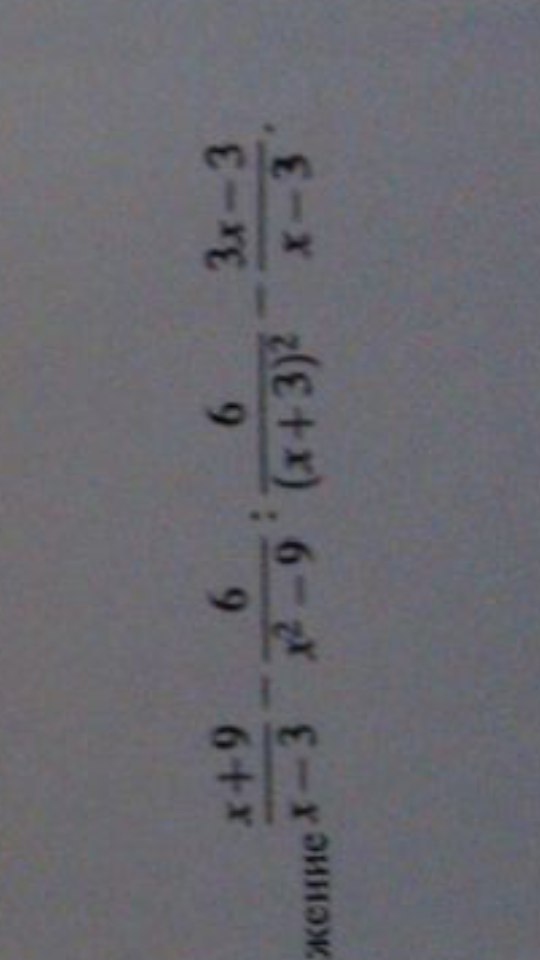 жение \frac{x+9}{x-3} - \frac{6}{x^2-9} : \frac{6}{(x+3)^2} - \frac{3x-3}{x-3}.